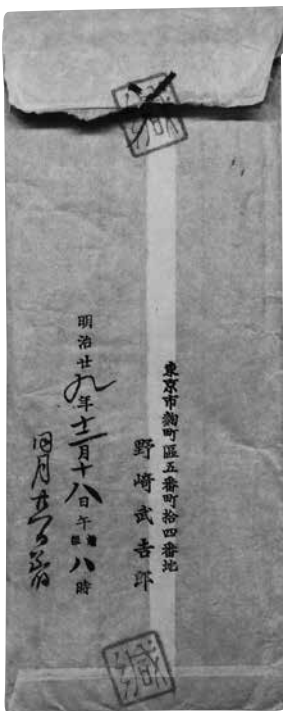 緘
東京市麴町區五番町拾四番地
野崎武吉郎
明治廿九年十二月十八日午八時
同月
緘